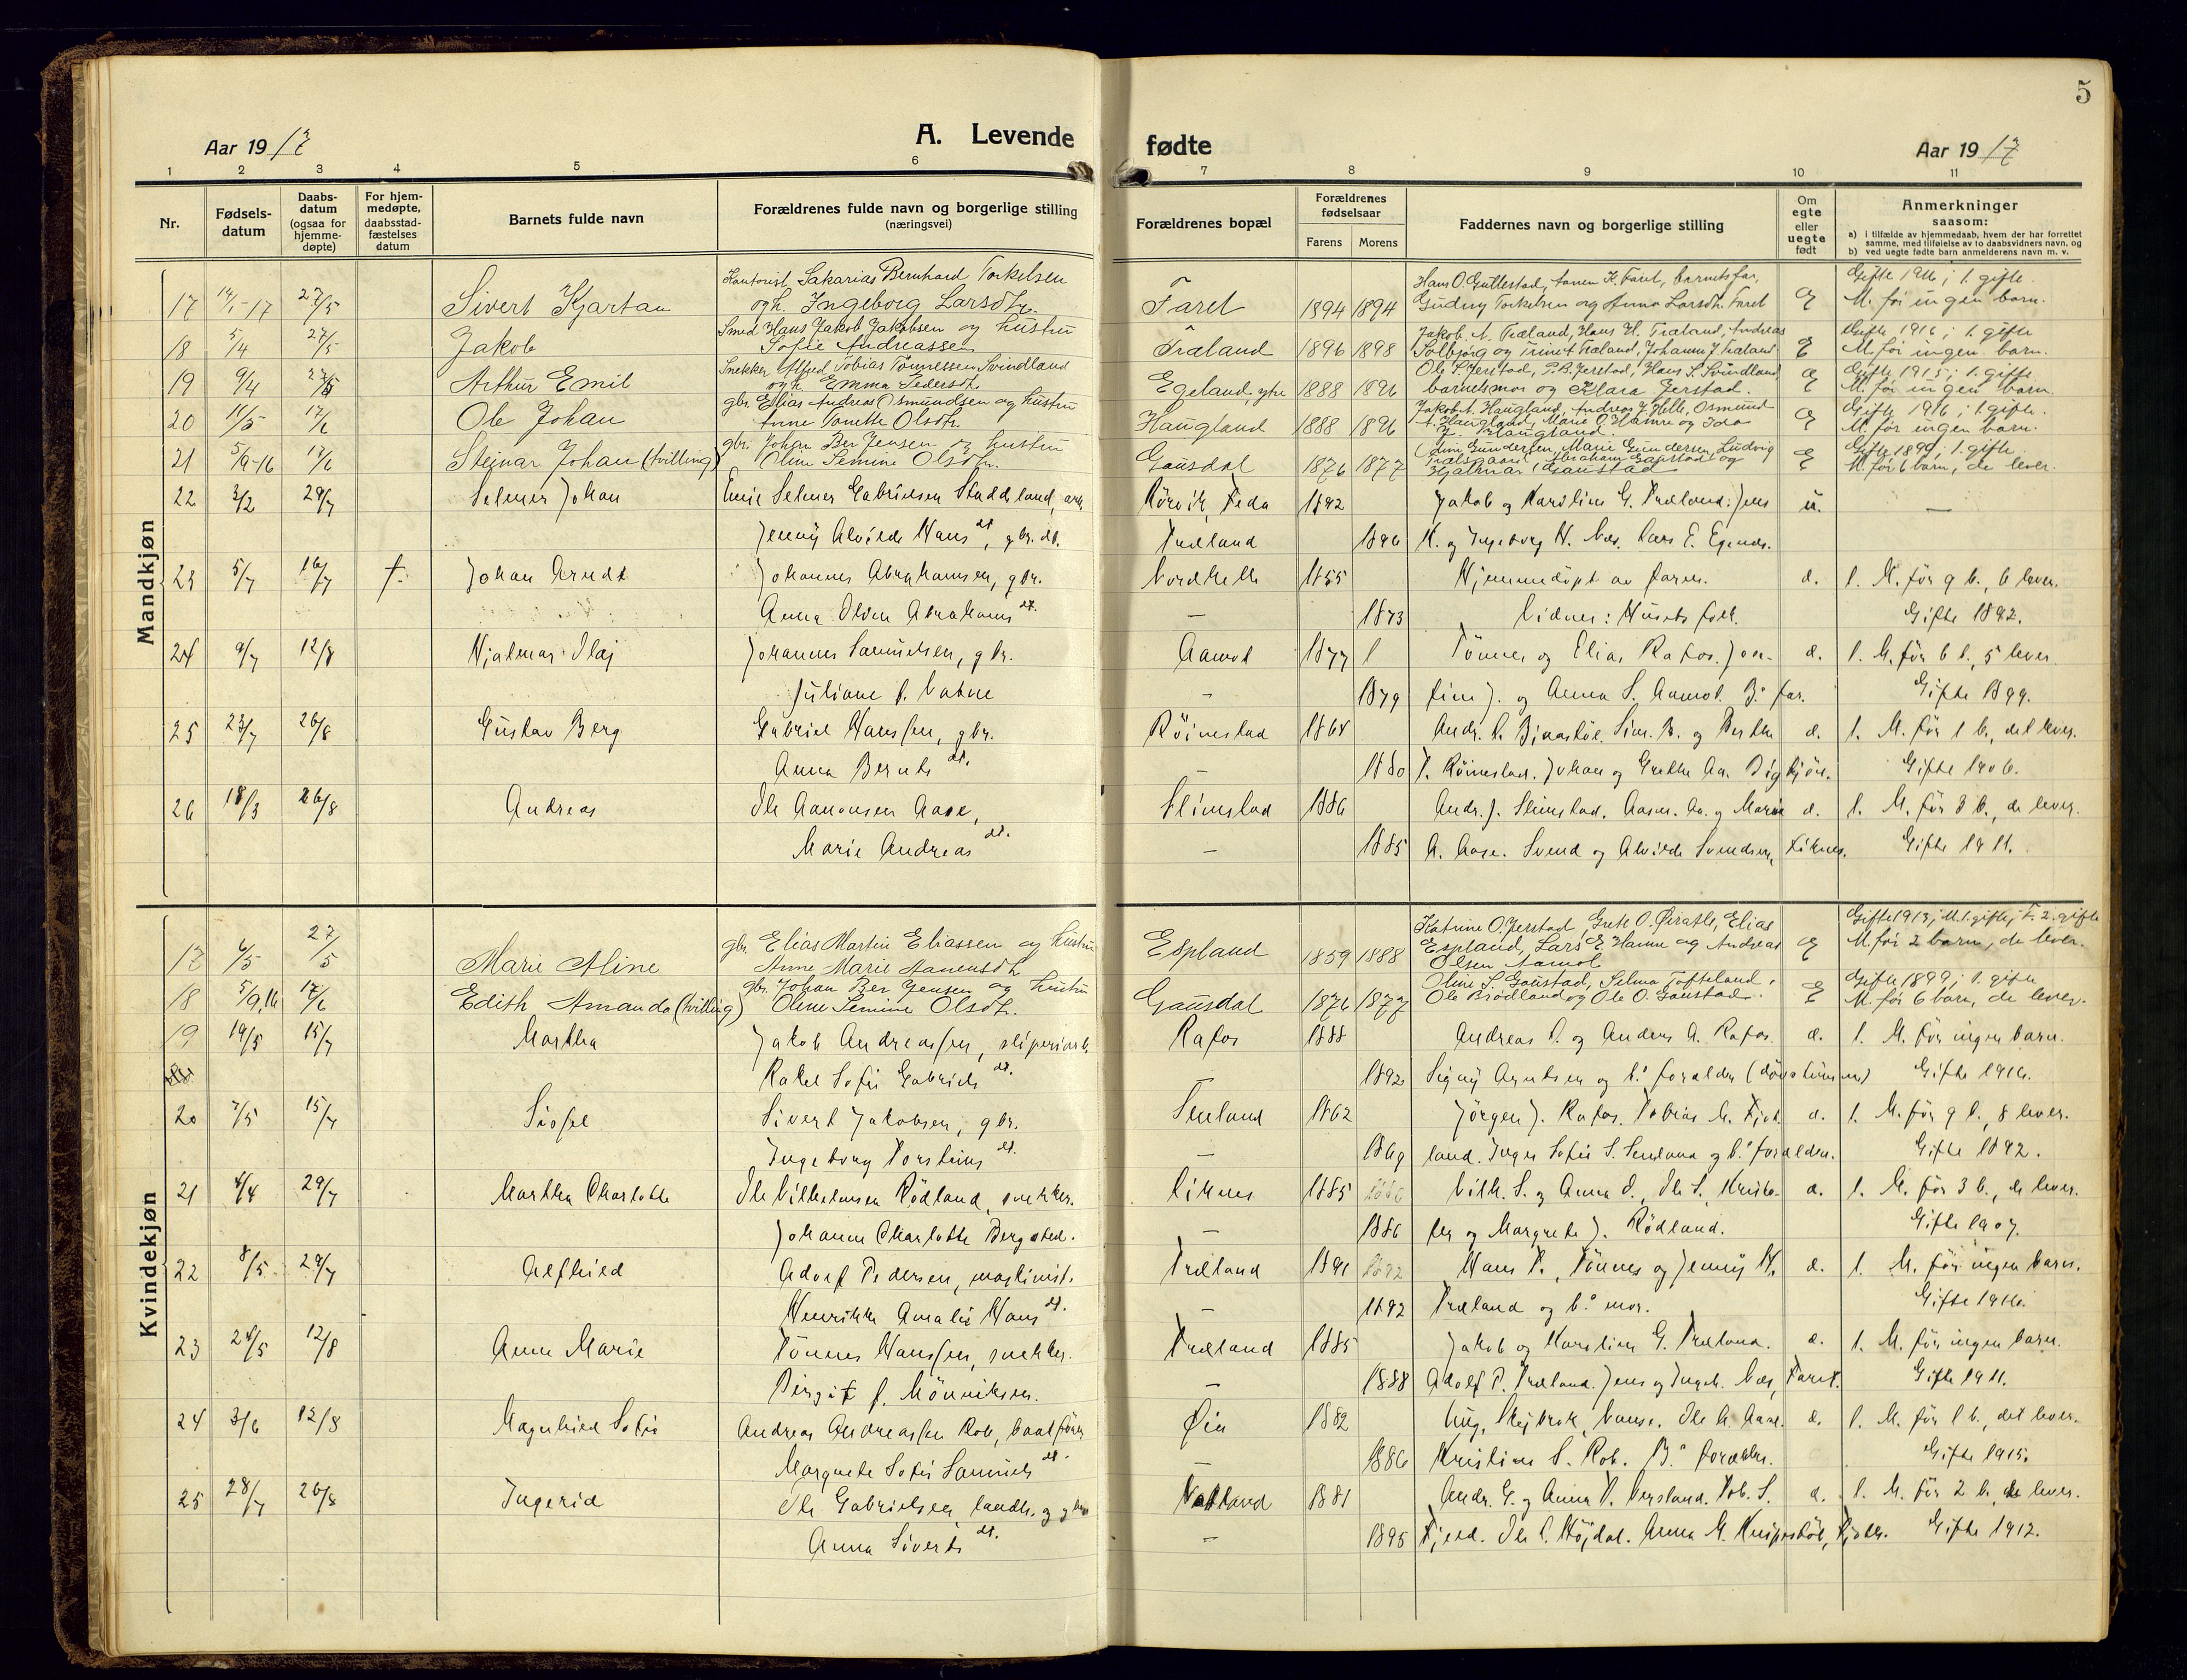 5
Aar 1917
A. Levende fødte
Aar 1917
1 2 3 4 5 6 7 8 9 10 11
Nr.
Fødsels-
datum
Daabs-
datum
(ogsaa for
hjemme-
døpte)
For hjem-
medøpte,
daabsstad-
fæstelses
datum
Barnets fulde navn
Forældrenes fulde navn og borgerlige stilling
(næringsvei)
Forældrenes bopæl
Forældrenes
fødselsaar
Farens Morens
Faddernes navn og borgerlige stilling
Om
egte
eller
uegte
født
Anmerkninger
saasom:
a) i tilfælde av hjemmedaab, hvem der har forrettet
samme, med tilføielse av to daabsvidners navn, og
b) ved uegte fødte barn anmelderens navn m. v.
Mandkjøn
17 14/1-17 27/5 Sivert Kjartan Kontorist Sakarias Bernhard Torkelsen Faret 1894 1894 Gifte 1916; 1. gifte.
og h. Ingeborg Larsdtr. Gudny Torkelsen og Anna Larsdtr. Faret M. før ingen barn.
18 5/4 27/5 Jakob Smed Hans Jakob Jakobsen og hustru Træland 1896 1898 Jakob A. Træland, Hans H. Træland, Andreas Gifte 1916; 1. gifte
Sofie Andreassen Solbjørg og Trine Træland, Johanna J. Træland M. før ingen barn.
19 9/4 27/5 Arthur Emil Snekker Alfred Tobias Tønnessen Svindland Egeland ytre 1888 1896 Ole S. Jerstad, P. B. Jerstad, Hans S. Svindland Gifte 1915; 1. gifte
og h. Emma Pedersdtr. barnets mor og Klara Jerstad. M. før ingen barn
20 11/5 17/6 Ole Johan gbr. Elias Andreas Osmundsen og hustru Haugland 1888 1896 Jakob A. Haugland, Andreas J. Helle, Osmund Gifte 1916; 1. gifte.
Anne Tonette Olsdtr. A. Haugland, Marie O. Hamre og M. før ingen barn.
J. Haugland.
21 5/9-16 17/6 Steinar Johan (tvilling) gbr. Johan Ber Jensen og hustru Gausdal 1876 1877 Gundersen, Marie Gundersen, Ludvig Gifte 1899; 1. gifte
Oline Semine Olsdtr. Abraham Gaustad og M. før 6 barn, de lever.
Hjalmar Gaustad
22 3/2 29/7 Selmer Johan Emil Selmer Gabrielsen Staddeland, arb. Rørvik, Feda 1892 Jakob og Karoline G. Træland. Jens u. —
Jenny Alvilde Hans dt., gbr. dt. Træland 1896 K. og Ingeborg H. Næs. Lars E.
23 5/7 16/7 †. Johan Arndt Johannes Abrahamsen, gbr. Nordhelle 1855 Hjemmedøpt av faren. æ. 1. M. før 9 b., 6 lever.
Anna Olden Abrahams dt. — 1873 Vidner: Husets folk. Gifte 1892.
24 9/7 12/8 Hjalmar Olaj Johannes Samuelsen, gbr. Aamot 1877 Tønnes og Elias Rafos. æ. 1. M. før 6 b., 5 lever.
Juliane — 1879 J. og Anna S. Aamot. B.s far. Gifte 1899.
25 23/7 26/8 Gustav Berg Gabriel Hanssen, gbr. Røinestad 1864 Andr. Sim. B. og Berthe æ. 1. M. før 1 b., det lever.
Anna Bernts dt. — 1880 T. Røinestad. Johan og Grethe Aa. Gifte 1906.
26 18/3 26/8 Andreas Ole Aanonsen Aase, Slimestad 1886 Andr. J. Slimestad. Aa. og Marie æ. 1. M. før 3 b., de lever.
Marie Andreas dt. — 1885 A. Aase. Svend og Alvilde Svendsen, Liknes. Gifte 1911.
Kvindekjøn
17 6/5 27/5 Marie Aline gbr. Elias Martin Eliassen og hustru Espland 1859 1888 Katrine O. Jerstad, Grete O. Elias Gifte 1913; M. 1. gifte; F. 2. gifte
Anne Marie Aanensdtr. Espland, Lars E. Hamre og Andreas M. før 2 barn, de lever.
Olsen Aamot
18 5/9,16 17/6 Edith Amanda (tvilling) gbr. Johan Ber Jensen og hustru Gausdal 1876 1877 Oline S. Gaustad, Selma Tofteland, Gifte 1899; 1. gifte
Oline Semine Olsdtr. Ole Brødland og Ole O. Gaustad. M. før 6 barn, de lever.
19 19/5 15/7 Martha Jakob Andreassen, sliperiarb. Rafos 1888 Andreas P. og Anders A. Rafos. æ. 1. M. før ingen barn.
Rakel Sofie Gabriels dt. — 1892 Signy Arntsen og b.s foreldre (døvstumme) Gifte 1916.
20 7/5 15/7 Sissel Sivert Jakobsen, gbr. Senland 1862 Jørgen J. Rafos. Tobias M. æ. 1. M. før 9 b., 8 lever.
Ingeborg Torsteins dt. — 1869 land. Inger Sofie S. Senland og b.s foreldre. Gifte 1892.
21 4/4 29/7 Martha Charlotte Ole Vilhelmsen Rødland, snekker. Liknes 1885 Vilh. S. og Anna O., Ole S. æ. 1. M. før 3 b., de lever.
Johanne Charlotte Bergsted. — 1886 og Margrete J. Rødland. Gifte 1907.
22 8/5 29/7 Alfhild Adolf Pedersen, maskinist. Træland 1891 Hans P., Tønnes og Jenny H. æ. 1. M. før ingen barn.
Henrikke Amalie Hans dt. — 1892 Træland og b.s mor. Gifte 1916.
23 24/5 12/8 Anne Marie Tønnes Hanssen, snekker. Træland 1885 Jakob og Karoline G. Træland. æ. 1. M. før ingen barn.
Birgit f. Mønniksen. — 1888 Adolf P. Træland. Jens og Ingeb. Næs, Faret. Gifte 1911.
24 3/6 12/8 Magnhild Sofie Andreas Andreassen Rob, baatfører Øie 1882 Vanse. Ole A. Aase. æ. 1. M. før 1 b., det lever.
Margrete Sofie Samuels dt. — 1886 Kristine S. Rob. B.s forældre. Gifte 1915.
25 28/7 26/8 Ingerid Ole Gabrielsen, landh. og gbr. Vatland 1881 Andr. G. og Anna T. Versland. Tob. S. æ. 1. M. før 2 b., de lever.
Anna Siverts dt. — 1895 Ole Anna M. Gifte 1912.